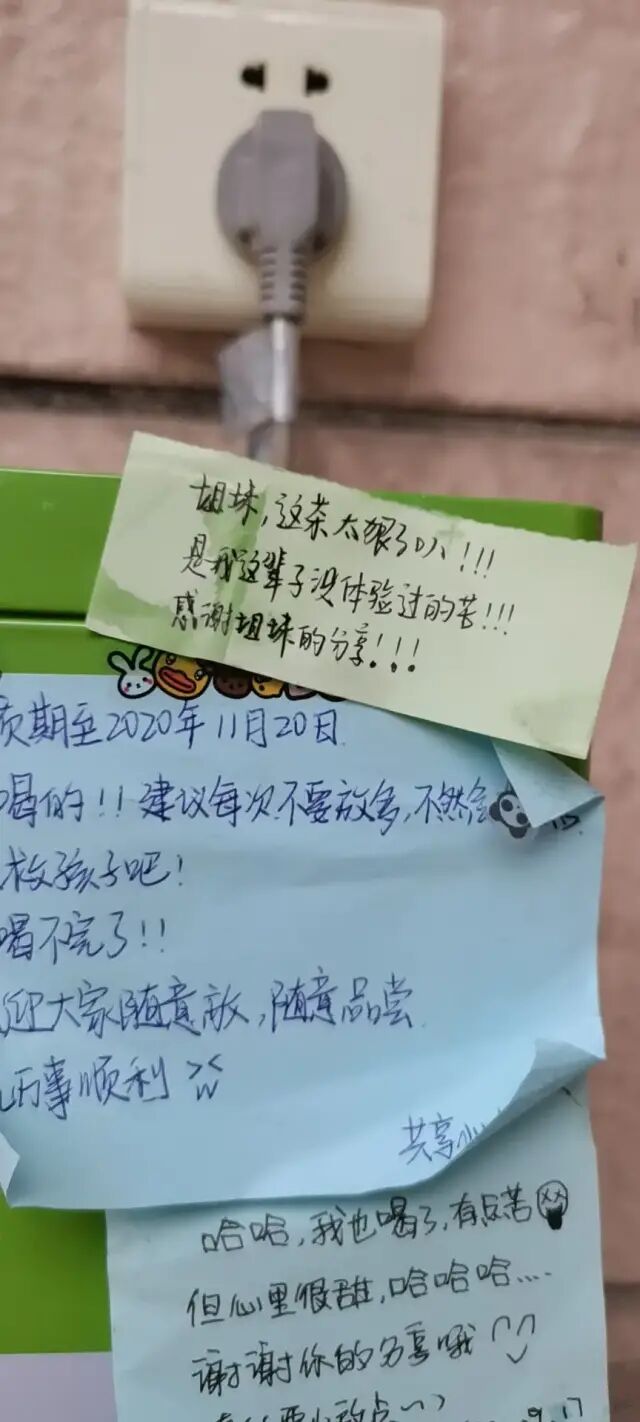 姐妹,这茶太狠了叭!!!
是我这辈子没体验过的苦!!!
感谢姐妹的分享!!!
质期至2020年11月20日
喝的!!建议每次不要放多,不然会
救孩子吧!
喝不完了!!
迎大家随意放,随意品尝
万事顺利
共享
哈哈,我也喝了,有点苦
但心里很甜,哈哈哈....
谢谢你的分享哦
9.17